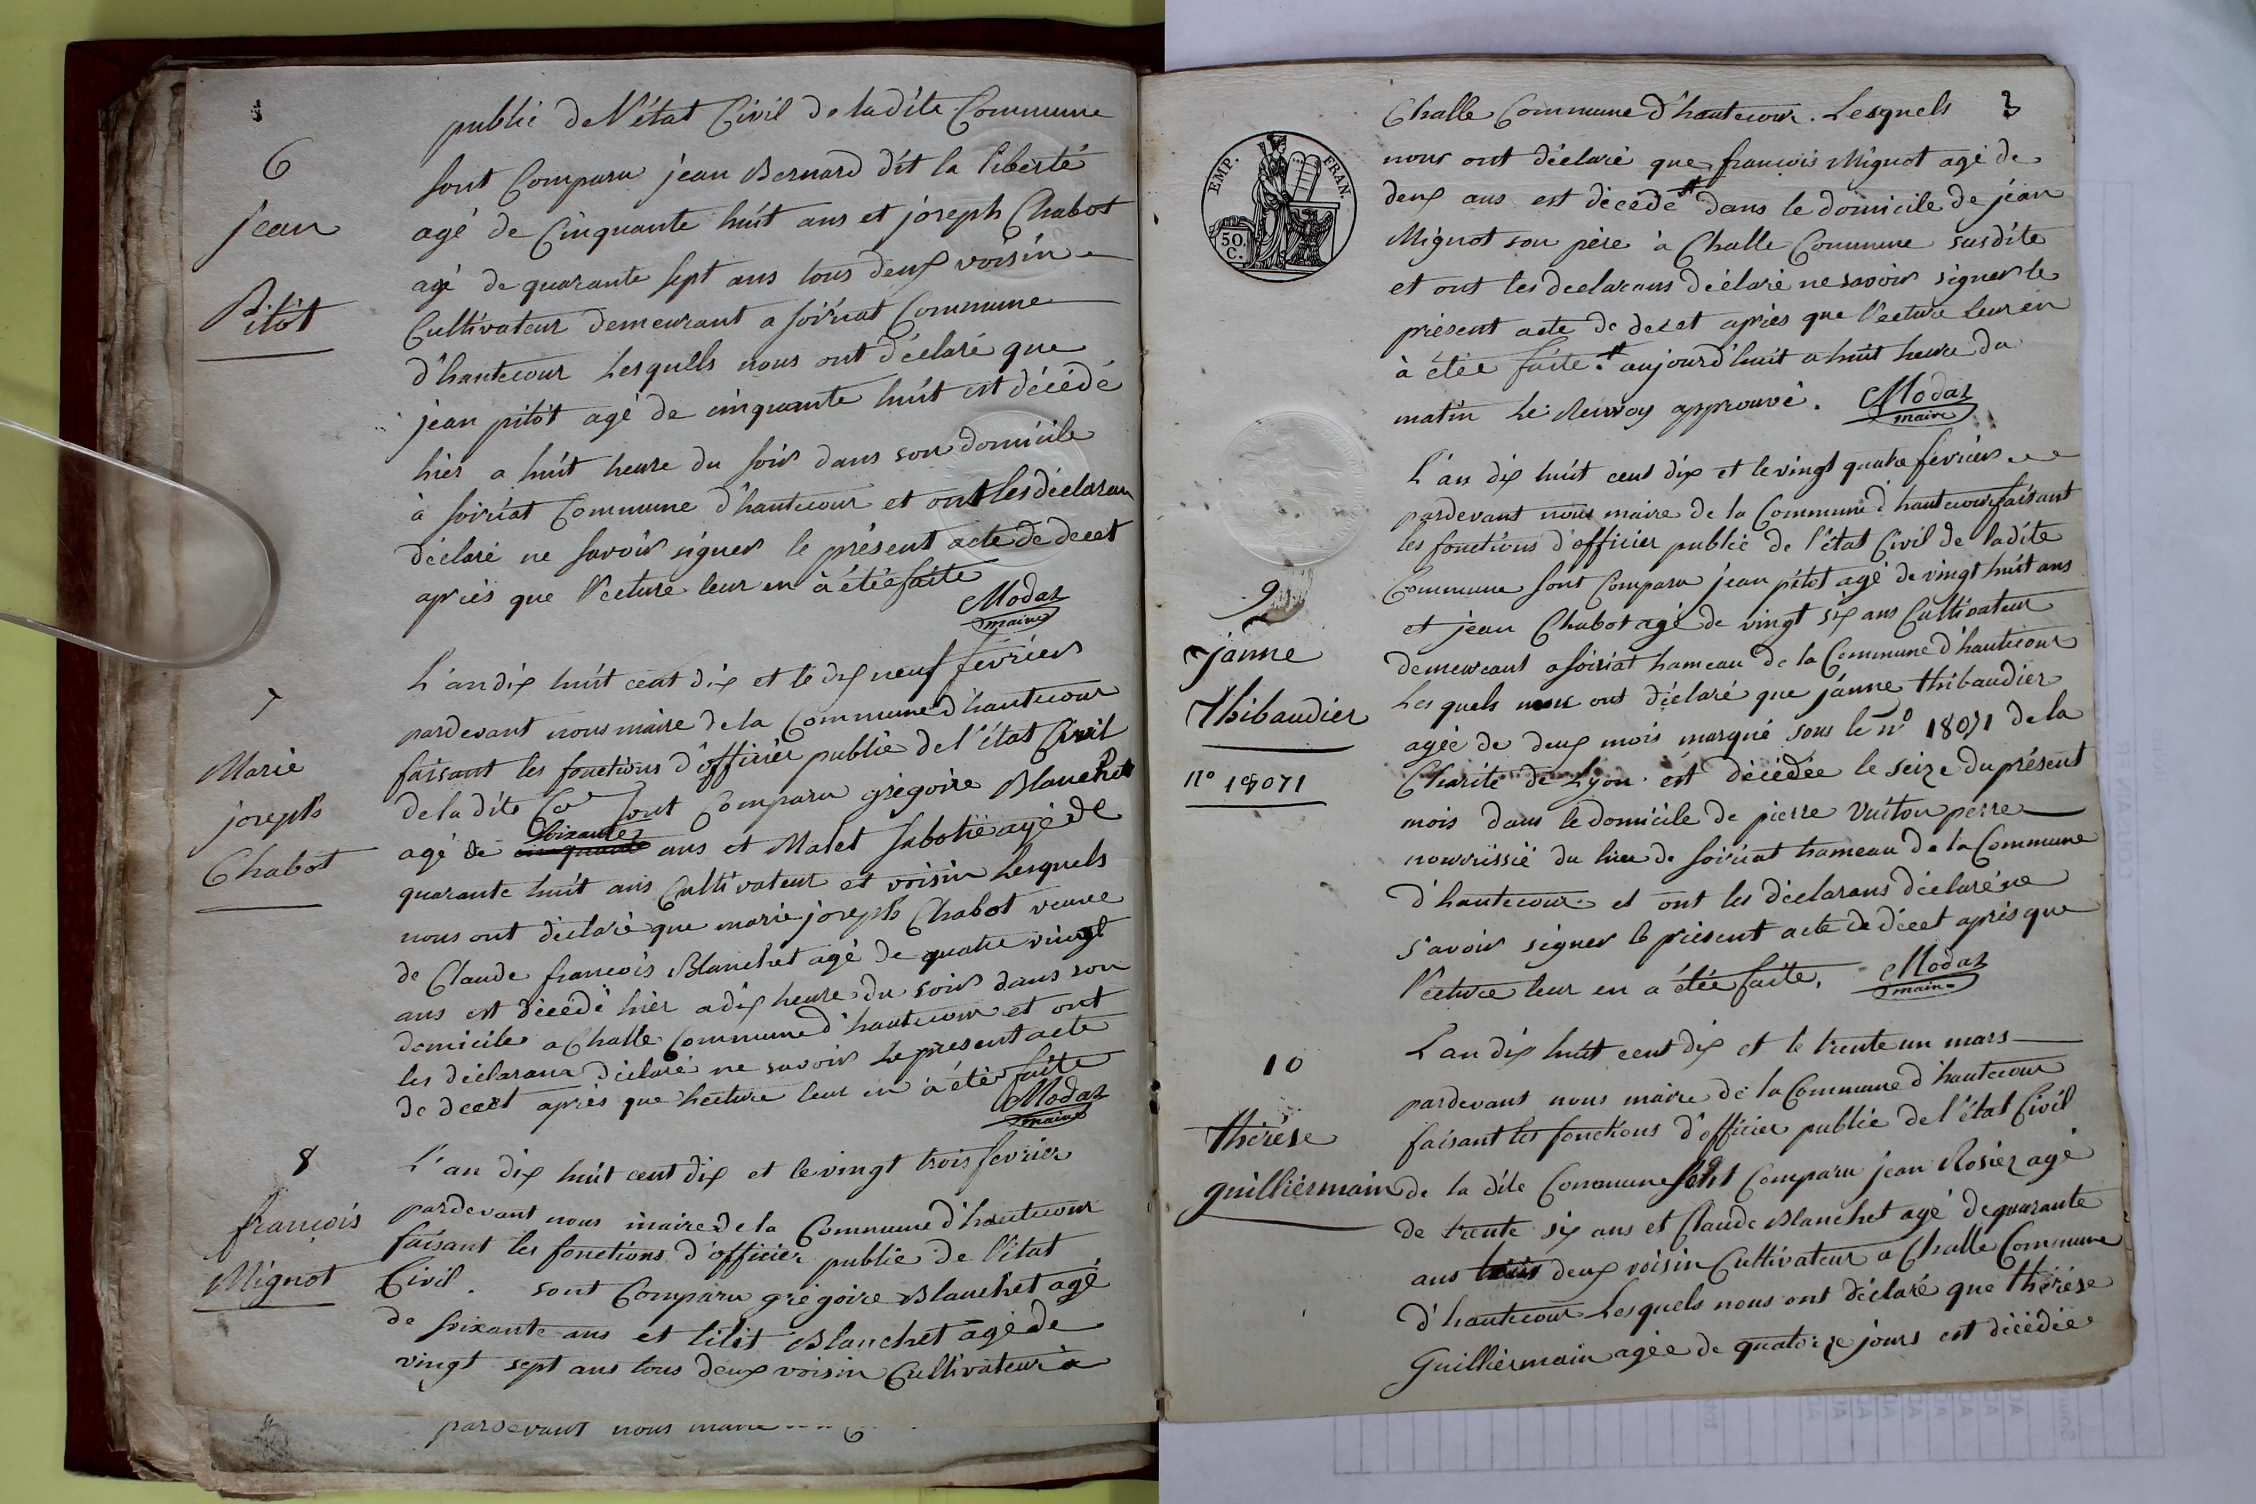 6
jean
Pitôt
public de l'état Civil de la dite Commune
sont Comparu jean Bernard dit la liberté
agé de Cinquante huit ans et joseph Chabot
agé de quarante sept ans tous deux voisin
Cultivateur demeurant a soiriat Commune
d'hautecour Lesquels nous ont déclaré que
jean pitôt agé de cinquante huit est décédé
hier a huit heure du soir dans son domicile
à soiriat Commune d'hautecour et ont les déclaran
déclaré ne savoir signer le présent acte de decet
apriès que l'ecture leur en à étée faite
Modaz
maire
7
Marie
joseph
Chabot
L'an dix huit cent dix et le dix neuf fevrier
pardevant nous maire de la Commune d'hautecour
faisant les fonctions d'officier public de l'état Civil
de la dite Co^e sont Comparu grégoire Blanchet
soixante
agé de cinquante ans et Malet sabotié agé de
quarante huit ans Cultivateur et voisin Lesquels
nous ont déclaré que marie joseph Chabot veuve
de Claude françois Blanchet agé de quatre vingt
ans est décédé hier a dix heure du soir dans son
domicile a Challe Commune d'hautecour et ont
les déclarans déclaré ne savoir Le present acte
de decet apriès que lecture leur en à étée faite
Modaz
maire
8
françois
Mignot
L'an dix huit cent dix et le vingt trois fevrier
pardevant nous maire de la Commune d'hautecour
faisant les fonctions d'officier public de l'état
Civil. sont Comparu grégoire Blanchet agé
de soixante ans et Blanchet agé de
vingt sept ans tous deux voisin Cultivateur à
pardevant nous maire
3
EMP. FRAN.
50.
C.
Challe Commune d'hautecour. Lesquels
nous ont déclaré que françois Mignot agé de
deux ans est décédé # dans le domicile de jean
Mignot son père à Challe Commune susdite
et ont les declarans déclaré ne savoir signer le
présent acte de decet apriès que l'ecture leur en
à étée faite. # aujourd'huit a huit heure du
matin Le Renvoy approuvé. Modaz
maire
9
janne
Thibaudier
n° 18071
L'an dix huit cent dix et le vingt quatre fevrier
pardevant nous maire de la Commune d'hautecour faisant
les fonctions d'officier public de l'état Civil de la dite
Commune sont Comparu jean pitot agé de vingt huit ans
et jean Chabot agé de vingt six ans Cultivateur
demeurant a soiriat hameau de la Commune d'hautecour
Lesquels nous ont déclaré que janne thibaudier
agée de deux mois marqué sous le n° 18071 de la
Charité de Lyon est décédée le seize du présent
mois dans le domicile de pierre Vuiton perre
nourrissié du lieu de soiriat hameau de la Commune
d'hautecour et ont les déclarans déclaré ne
s'avoir signer le présent acte de décet apriès que
l'ecture leur en a étée faite. Modaz
maire
10
thérèse
guilliermain
L'an dix huit cent dix et le trente un mars
pardevant nous maire de la Commune d'hautecour
faisant les fonctions d'officier public de l'état Civil
de la dite Commune sont Comparu jean Rosiez agé
de trente six ans et Claude Blanchet agé de quarante
ans tous deux voisin Cultivateur a Challe Commune
d'hautecour Lesquels nous ont déclaré que thérèse
Guilliermain agée de quatorze jours est décédée